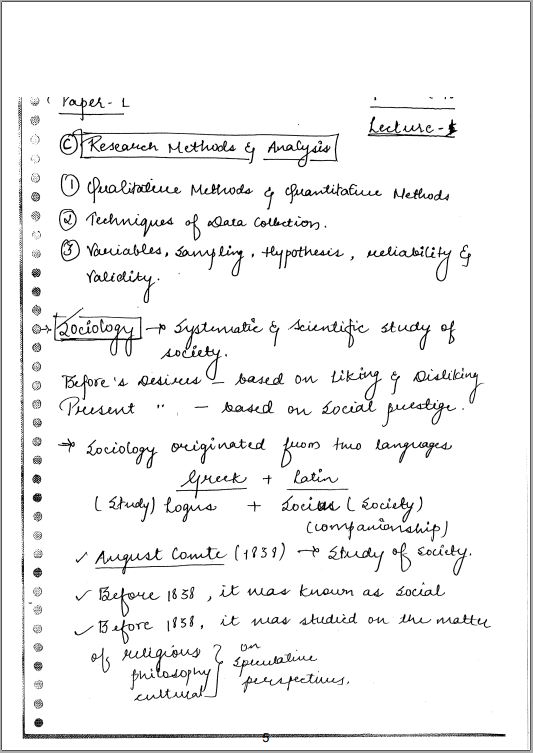 Paper - 1
Lecture -
Ⓒ Research Methods & Analysis
① Qualitative Methods & Quantitative Methods
② Techniques of Data Collection.
③ Variables, Sampling, Hypothesis, reliability &
Validity.
→ Sociology → Systematic & Scientific study of
society.
Before's Desires – based on Liking & Disliking
Present " – based on Social prestige.
→ Sociology originated from two languages
Greek + Latin
(Study) Logus + Socius (Society)
(companionship)
✓ August Comte (1838) → Study of Society.
✓ Before 1838, it was known as Social
✓ Before 1838, it was studied on the matter
of religious } on
philosophy } speculative
cultural } perspectives.
5